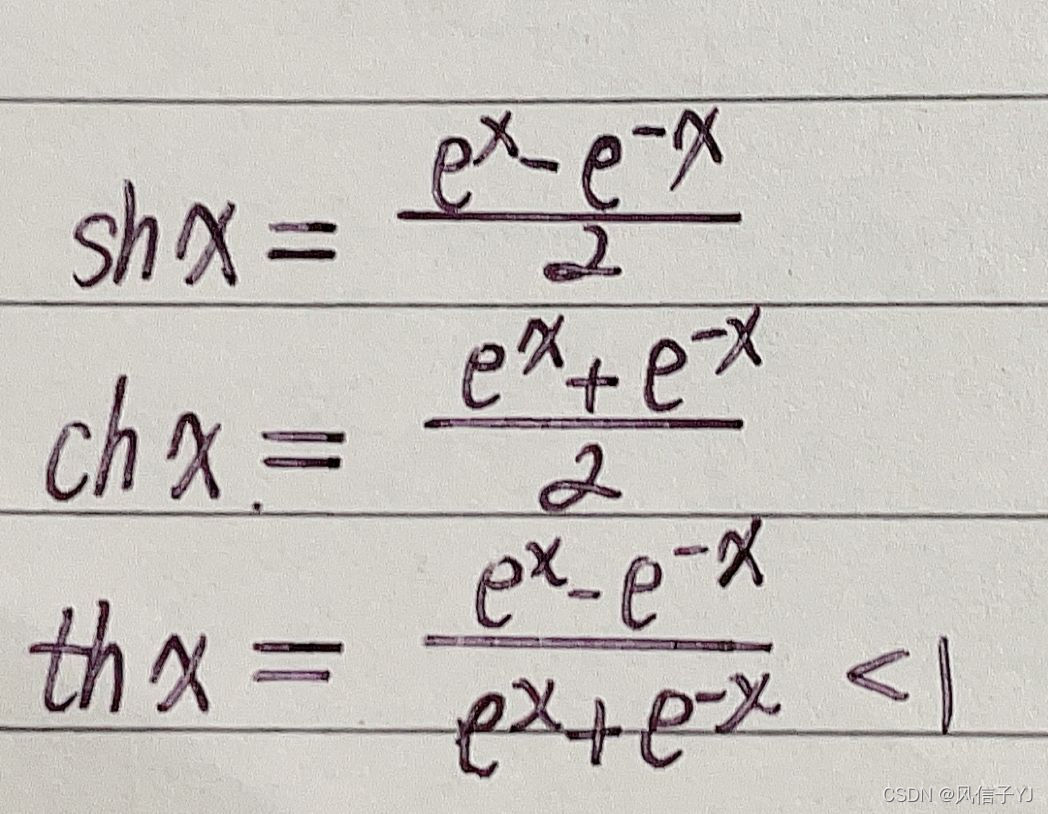 shx = \frac{e^x - e^{-x}}{2}
chx = \frac{e^x + e^{-x}}{2}
thx = \frac{e^x - e^{-x}}{e^x + e^{-x}} < 1
CSDN @风信子YJ